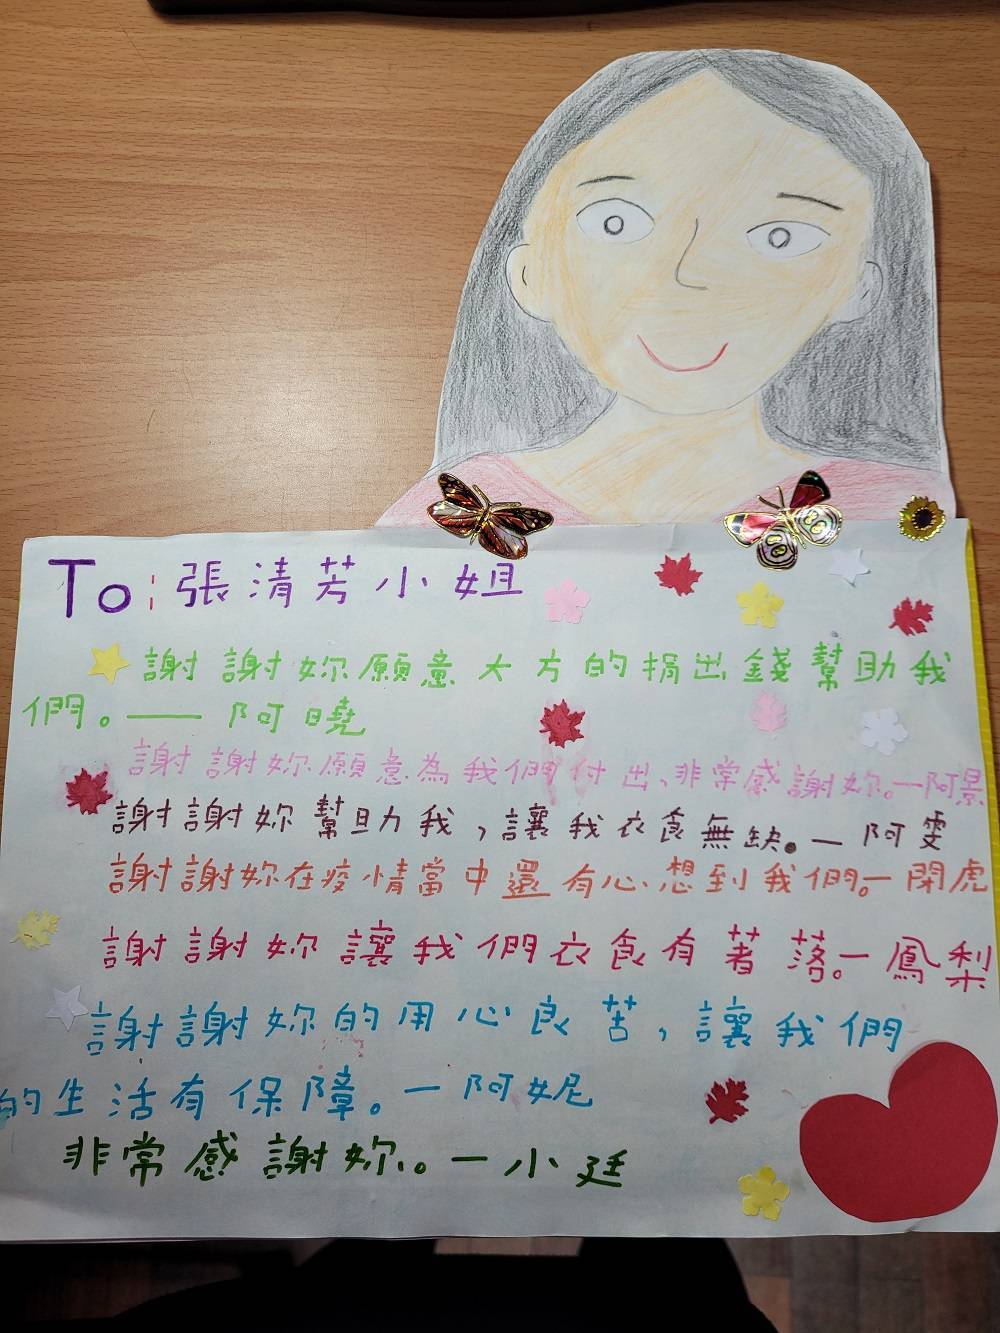 To:張清芳小姐
謝謝妳願意大方的捐出錢幫助我
們。——阿曉
謝謝妳願意為我們付出、非常感謝妳。—阿景
謝謝妳幫助我,讓我衣食無缺。—阿雯
謝謝妳在疫情當中還有心想到我們。—閉虎
謝謝妳讓我們衣食有著落。—鳳梨
謝謝妳的用心良苦,讓我們
的生活有保障。—阿妮
非常感謝妳。—小廷